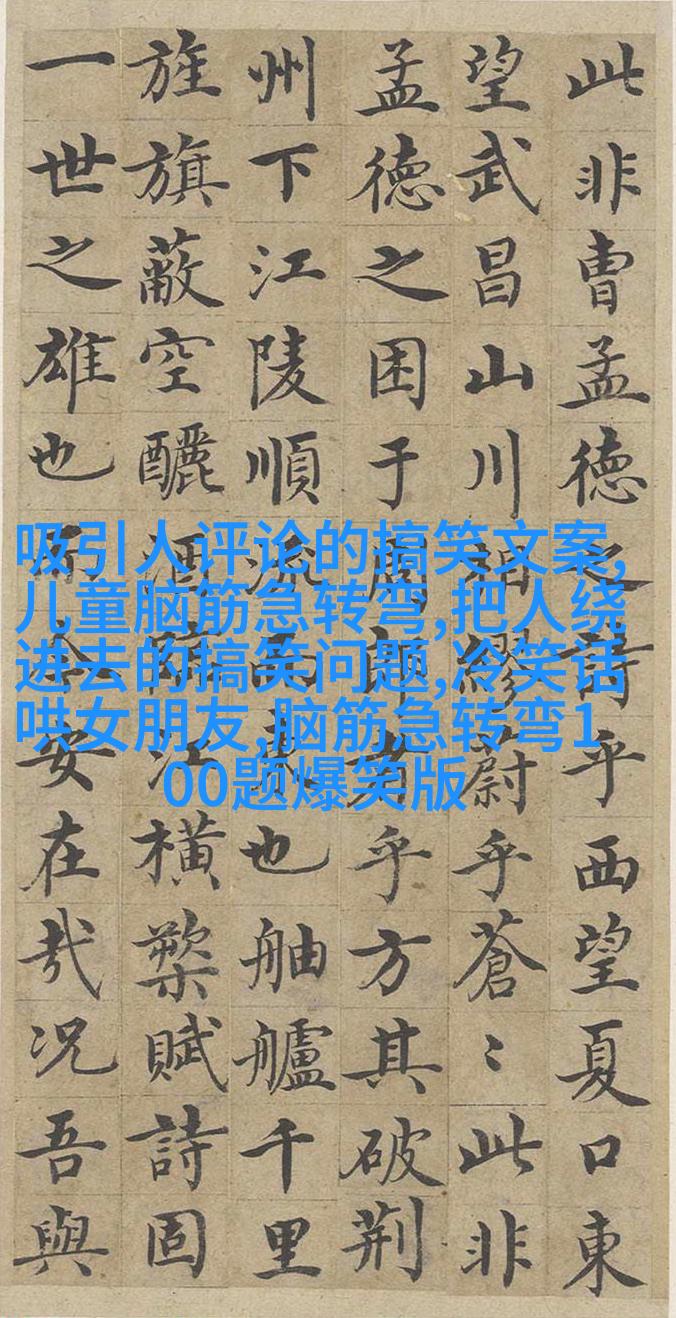 此非曹孟德之詩乎西望夏口東
望武昌山川相繆蔚乎蒼〻此非
孟德之困于周郎者乎方其破荆
州下江陵順流而東也舳艫千里
旌旗蔽空釃酒臨江横槊賦詩固
一世之雄也而今安在哉况吾與
吸引人评论的搞笑文案,
儿童脑筋急转弯,把人绕
进去的搞笑问题,冷笑话
哄女朋友,脑筋急转弯1
00题爆笑版